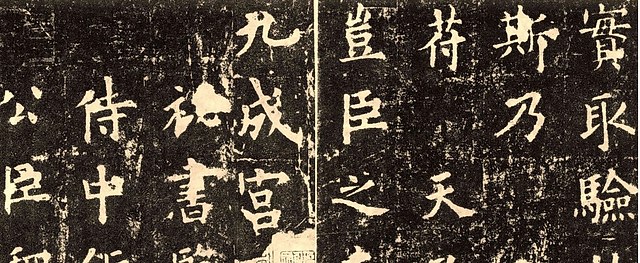 實取驗
斯乃
苻天
豈臣之
九成宮
祕書
侍中
公臣